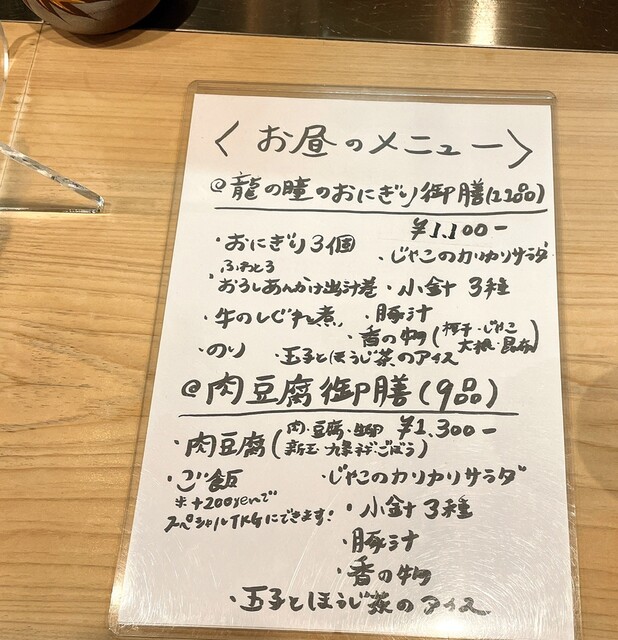 〈お昼のメニュー〉
@龍の瞳のおにぎり御膳(12品)
¥1.100-
・おにぎり3個 ・じゃこのカリカリサラダ
ふわとろ
・おろしあんかけ出汁巻 ・小針 3種
・牛のしぐれ煮 ・豚汁
・香の物(梅干・じゃこ 大根・昆布)
・のり ・玉子とほうじ茶のアイス
@肉豆腐御膳(9品)
¥1.300-
・肉豆腐(肉・豆腐・生卵 新玉・九条ネギ・ごぼう)
・ご飯 ・じゃこのカリカリサラダ
※+200yenで ・小針 3種
スペシャルTKGにできます!
・豚汁
・香の物
・玉子とほうじ茶のアイス